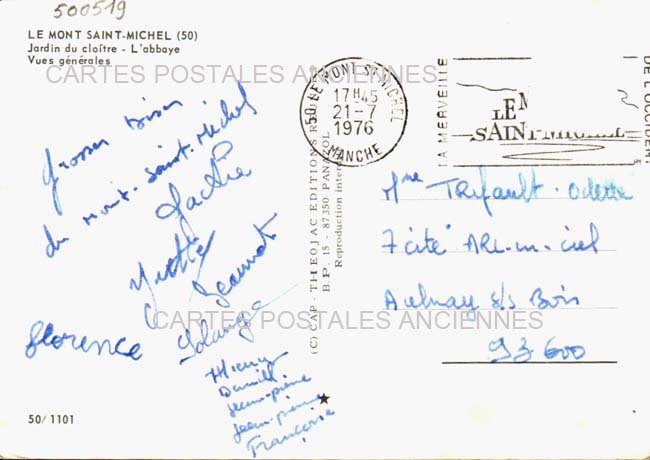 500519
LE MONT SAINT-MICHEL (50)
Jardin du cloître - L'abbaye
Vues générales
CARTES POSTALES ANCIENNES
50 LE MONT ST MICHEL
17H45
21-7
1976
MANCHE
LA MERVEILLE
LE M
SAINT-MICHEL
DE L'OCCIDENT
Grosses bises
du Mont-Saint-Michel
Jackie
Yvette
Jeannot
Florence
Solange
Thierry
Danielle
Jean-pierre
Jean-pierre
Françoise
(C) CAP - THEOJAC EDITIONS R
B.P. 15 - 87350 PANAZOL
Reproduction interdite
Mme Trifault Odette
7 cité ARC-en-ciel
Aulnay s/s Bois
93600
CARTES POSTALES ANCIENNES
50/1101